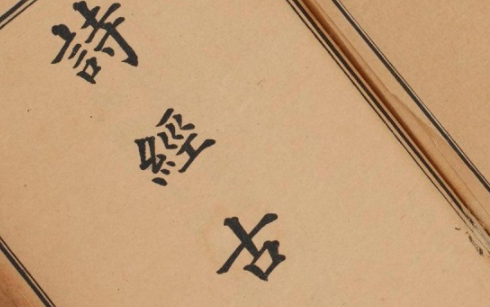 詩經古